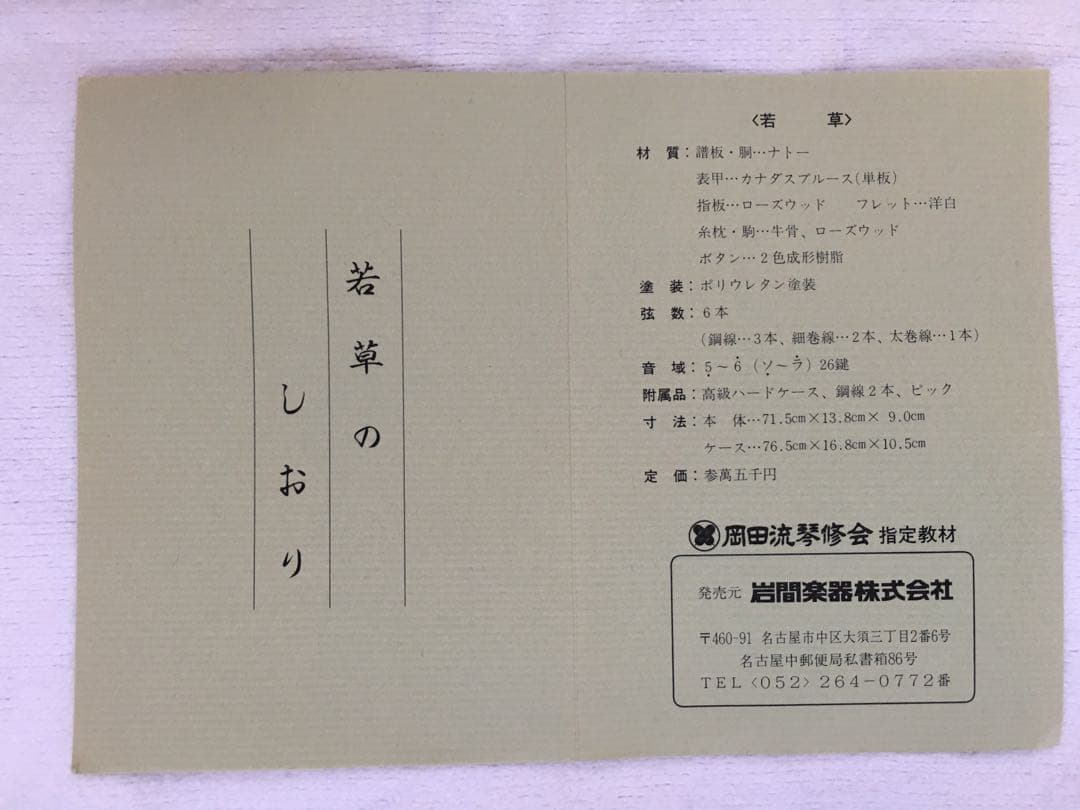 若草の
しおり
〈若　草〉
材　質：譜板・胴…ナトー
表甲…カナダスプルース(単板)
指板…ローズウッド　フレット…洋白
糸枕・駒…牛骨、ローズウッド
ボタン…2色成形樹脂
塗　装：ポリウレタン塗装
弦　数：6本
(鋼線…3本、細巻線…2本、太巻線…1本)
音　域：5̣～6̇（ソ̣～ラ̇）26鍵
附属品：高級ハードケース、鋼線2本、ピック
寸　法：本　体…71.5cm×13.8cm× 9.0cm
ケース…76.5cm×16.8cm×10.5cm
定　価：参萬五千円
岡田流琴修会 指定教材
発売元 岩間楽器株式会社
〒460-91 名古屋市中区大須三丁目2番6号
名古屋中郵便局私書箱86号
TEL〈052〉264-0772番